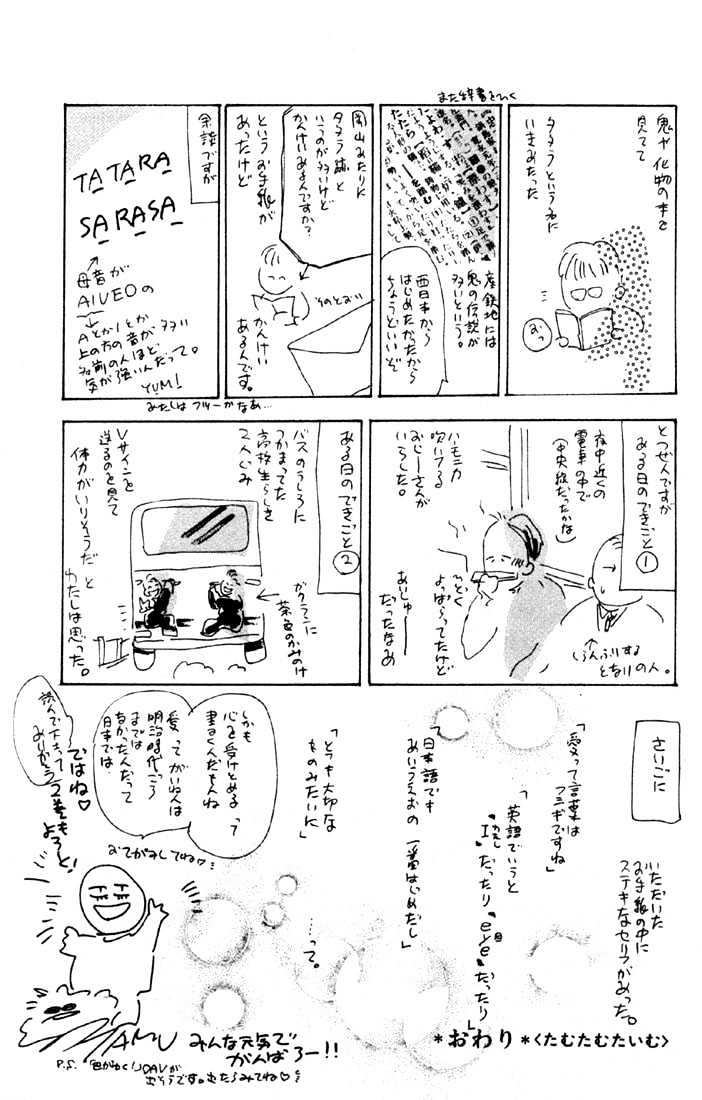 鬼や化物の本を
見てて
タタラという名に
いきあたった
おっ
また辞書をひく
産鉄地には
鬼の伝説が
多いという。
西日本から
はじめたかったから
ちょうどいいぞ
岡山あたりに
タタラ跡と
いうのが多いけど
かんけいあるんですか?
というお手紙が
あったけど
そのとおり
かんけい
あるんです。
余談ですが
TATARA
SARASA
母音が
AIUEOの
AとかIとか
上の方の音が多い
名前の人ほど
気が強いんだって。
YUM!
わたしはフツーかなあ…
とつぜんですが
ある日のできごと①
夜中近くの
電車の中で
(中央線だったかな)
ハモニカ
吹いてる
おじーさんが
いらした。
ひどく
よっぱらってたけど
あいじゅー
だったなあ
↑
しらんふりする
となりの人。
ある日のできごと②
バスのうしろに
つかまってた
高校生らしき
2人じみ
ガクランに
茶色のかみのけ
Vサインを
送るのを見て
体力がいりそうだ と
わたしは思った。
さいごに
いただいた
お手紙の中に
ステキなセリフがあった。
「愛って言葉は
フシギですね」
「英語でいうと
"I"だったり"eye"だったり」
「日本語でも
あいうえおの 一番はじめだし」
「とても大切な
ものみたいに」
……って。
しかも
心を受けとめる って
書くんだもんね
愛 って がいねんは
明治時代ごろ
までは
なかったんだって
日本では。
おてがみしてね♡
ではね♡
読んで下さって
ありがとう
2巻もよろしく!
TAMU
みんな元気で
がんばろー!!
*おわり*<たむたむたいむ>
P.S.
OAVが
出そうです。出たらみてね♡